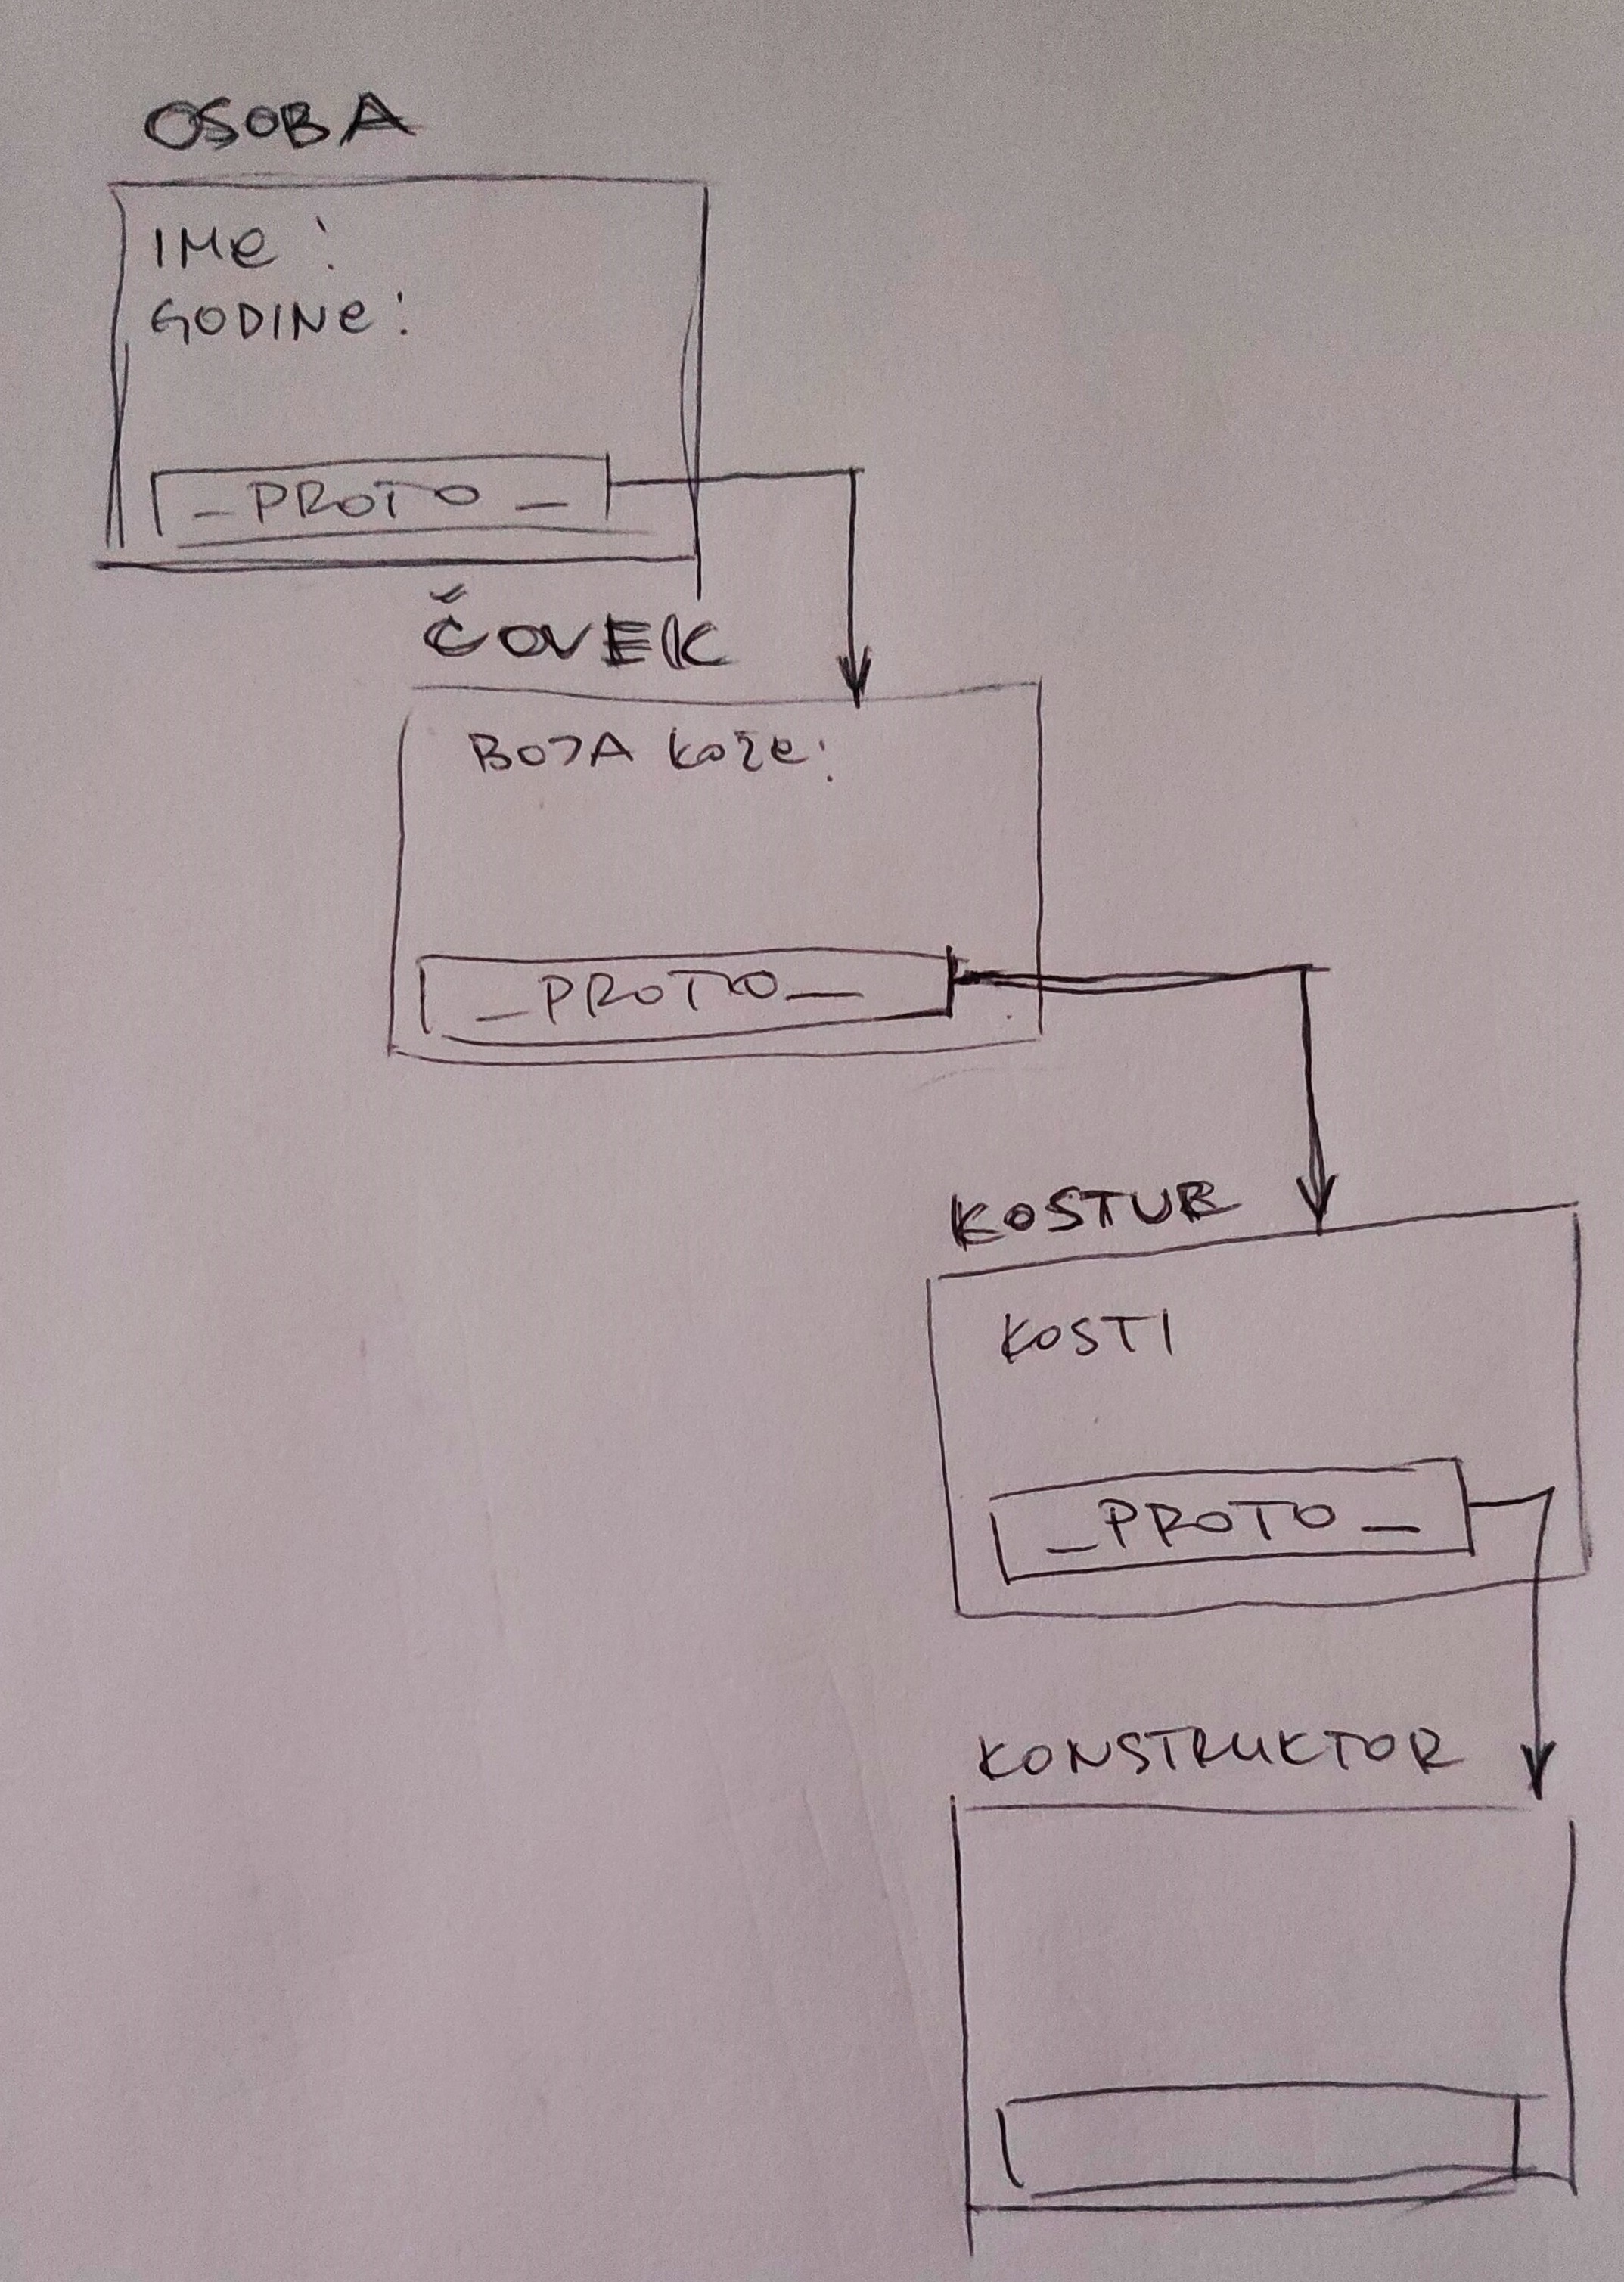 OSOBA
IMe :
GODINe :
_PROTO_
ČOVEK
BOJA KOŽe :
_PROTO_
KOSTUR
KOSTI
_PROTO_
KONSTRUKTOR